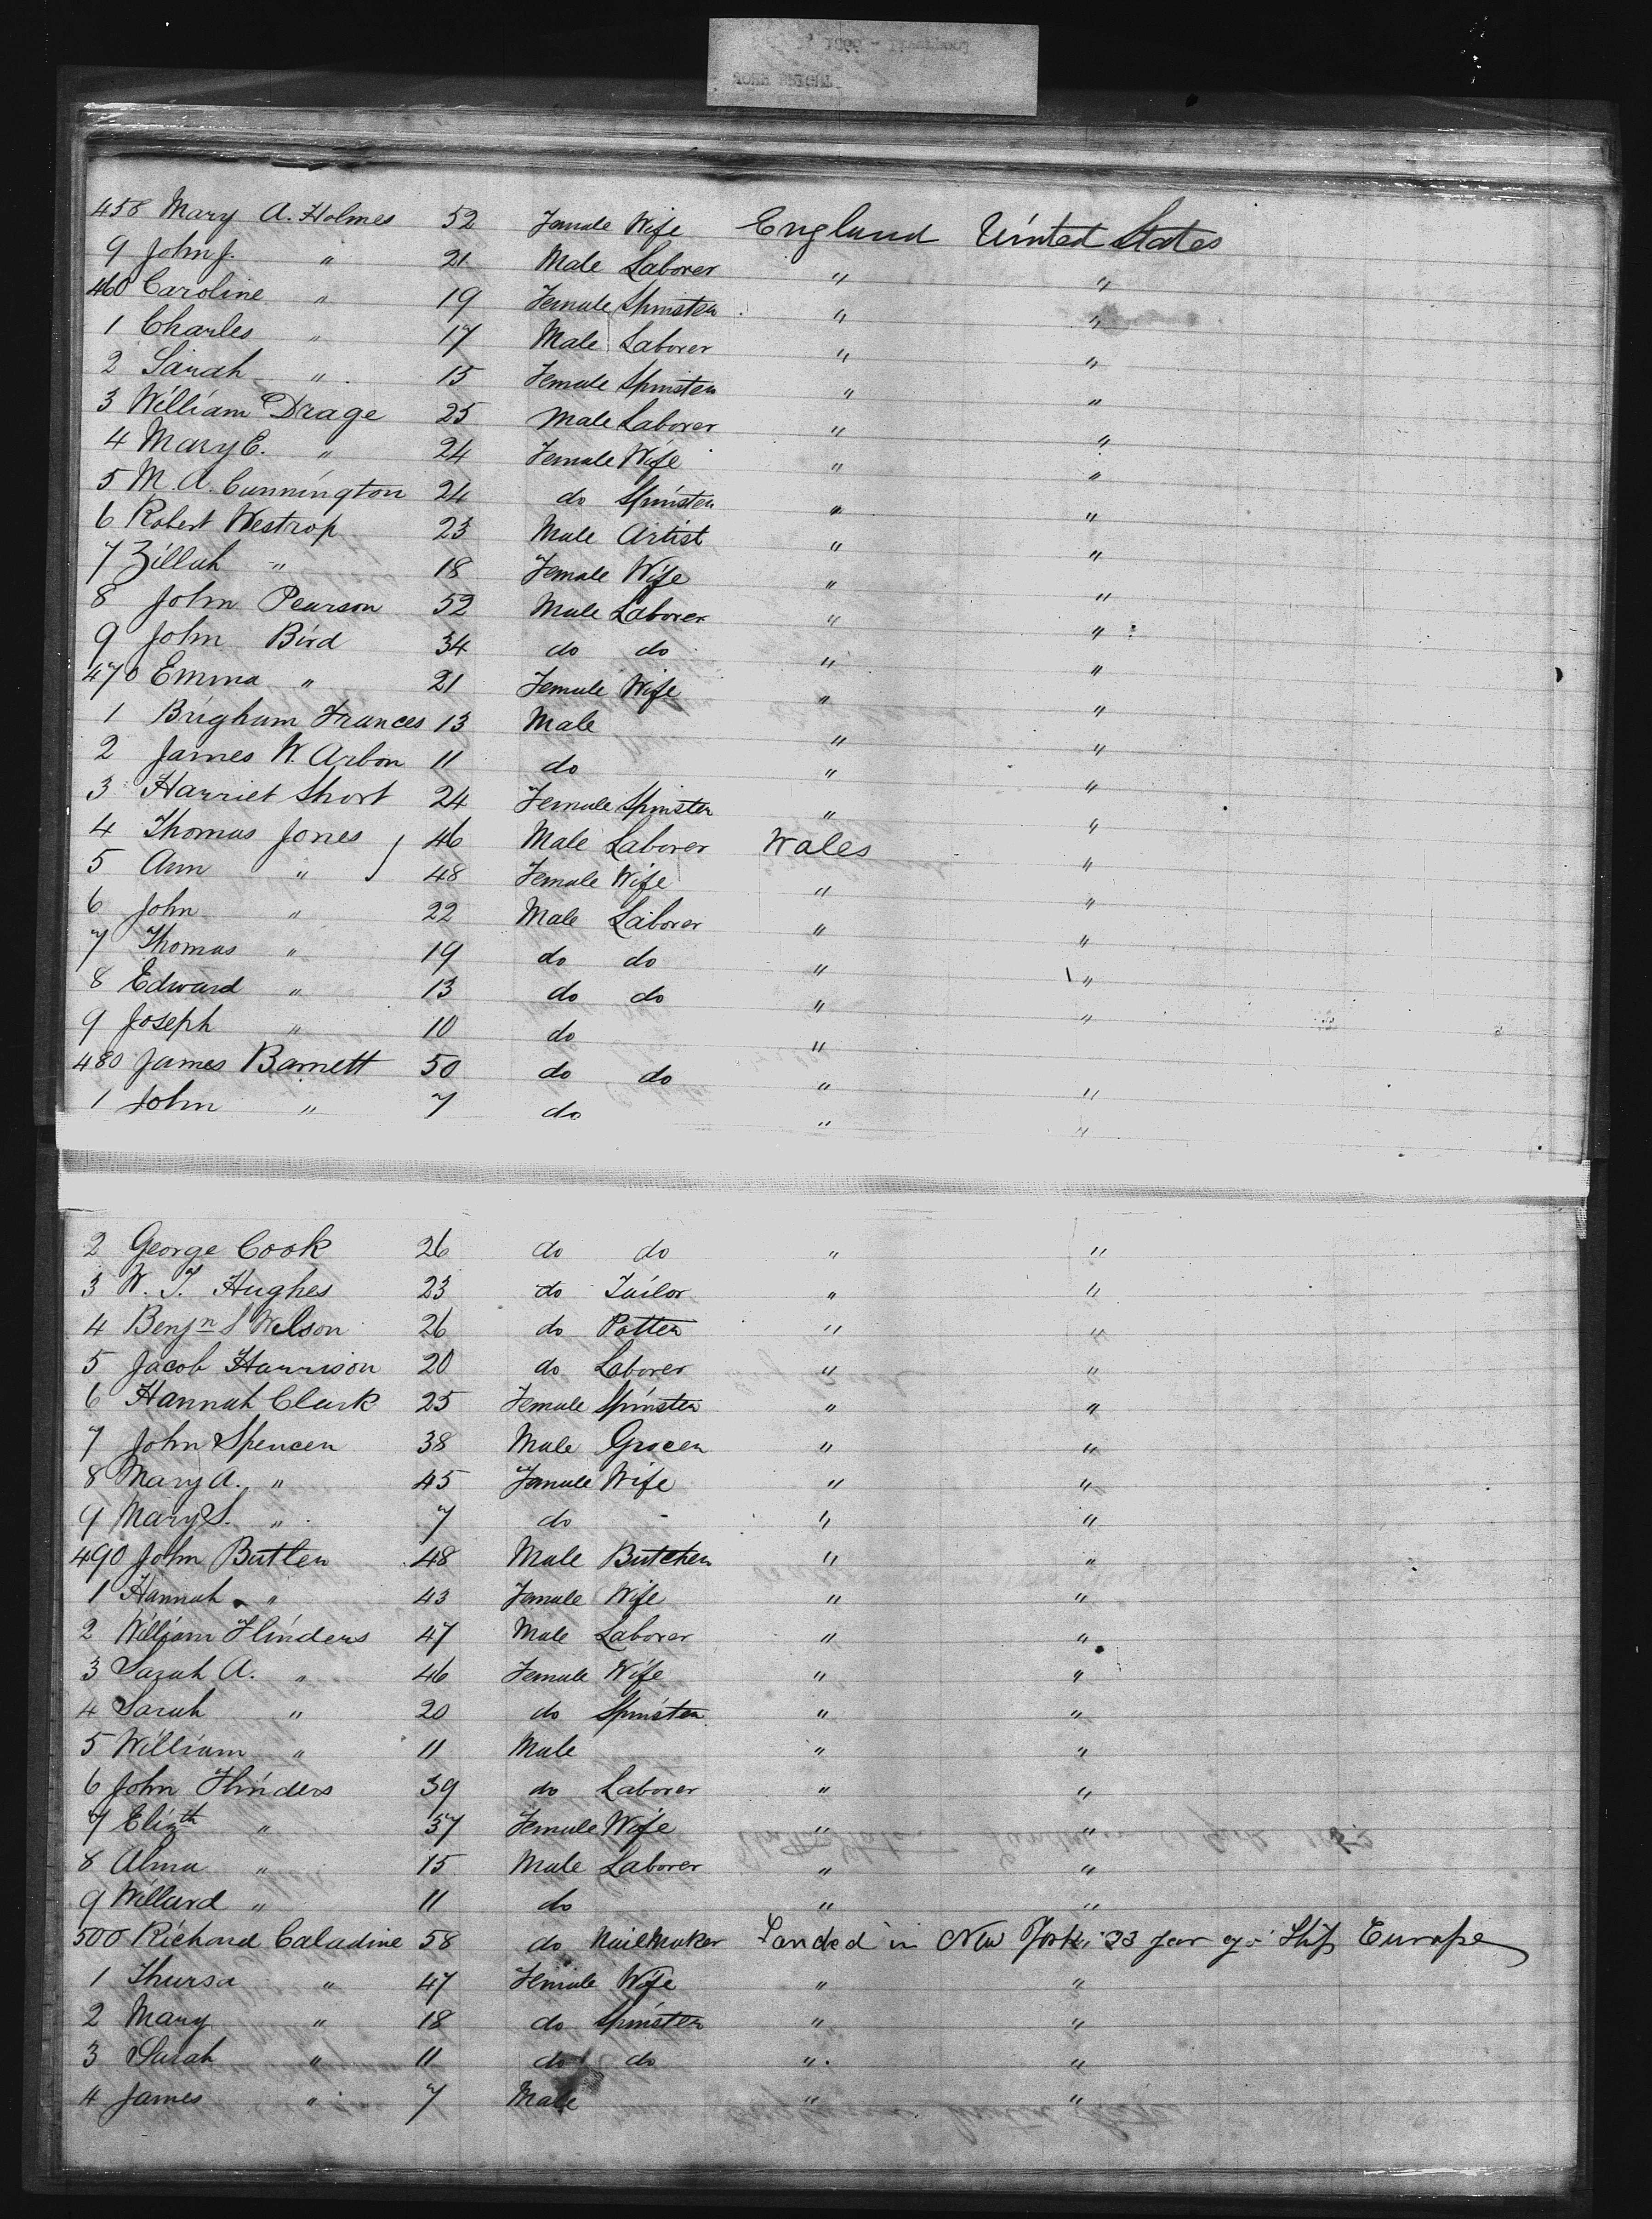 458 Mary A. Holmes 52 Female Wife England United States
9 John J. " 21 Male Laborer " "
460 Caroline " 19 Female Spinster " "
1 Charles " 17 Male Laborer " "
2 Sarah " 15 Female Spinster " "
3 William Drage 25 Male Laborer " "
4 Mary E. " 24 Female Wife " "
5 M. A. Cunnington 24 do Spinster " "
6 Robert Westrop 23 Male Artist " "
7 Zillah " 18 Female Wife " "
8 John Pearson 52 Male Laborer " "
9 John Bird 34 do do " "
470 Emma " 21 Female Wife " "
1 Brigham Frances 13 Male " "
2 James W. Arbon 11 do " "
3 Harriet Short 24 Female Spinster " "
4 Thomas Jones 46 Male Laborer Wales "
5 Ann " 48 Female Wife " "
6 John " 22 Male Laborer " "
7 Thomas " 19 do do " "
8 Edward " 13 do do " "
9 Joseph " 10 do "
480 James Barnett 50 do do " "
1 John " 7 do " "
2 George Cook 26 do do " "
3 W. T. Hughes 23 do Tailor " "
4 Benjn S Wilson 26 do Potter " "
5 Jacob Harrison 20 do Laborer " "
6 Hannah Clark 25 Female Spinster " "
7 John Spencer 38 Male Grocer " "
8 Mary A. " 45 Female Wife " "
9 Mary S. " 7 do " "
490 John Butler 48 Male Butcher " "
1 Hannah " 43 Female Wife " "
2 William Flinders 47 Male Laborer " "
3 Sarah A. " 46 Female Wife " "
4 Sarah " 20 do Spinster " "
5 William " 11 Male " "
6 John Flinders 39 do Laborer " "
7 Elizth " 37 Female Wife " "
8 Alma " 15 Male Laborer " "
9 Willard " 11 do " "
500 Richard Caladine 58 do Nailmaker Landed in New York, Ship Europe
1 Thursa " 47 Female Wife " "
2 Mary " 18 do Spinster " "
3 Sarah " 11 do do " "
4 James " 7 Male " "